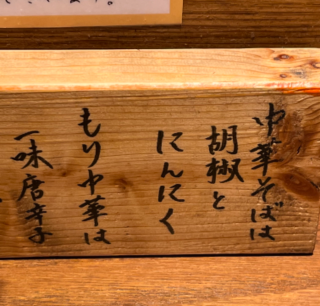 中華そばは
胡椒と
にんにく
もり中華は
一味唐辛子